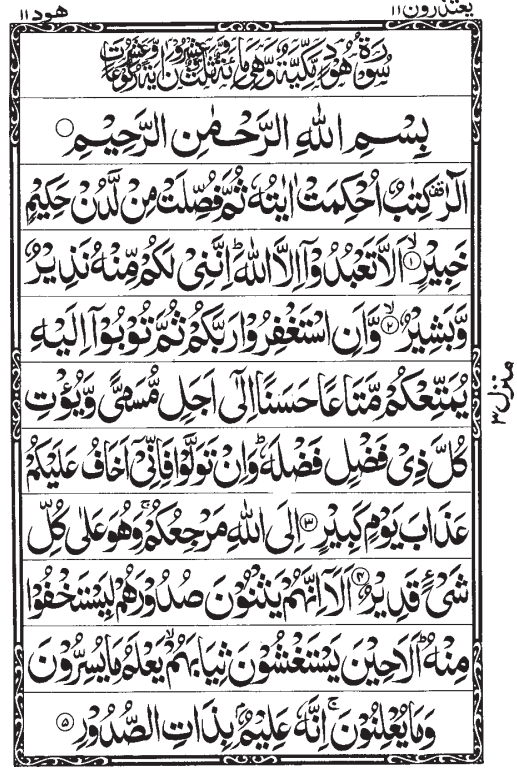 یعتذرون ۱۱
هود ۱۱
سُوْرَةُ هُوْدٍ مَّكِّيَّةٌ وَّهِىَ مِائَةٌ وَّثَلٰثٌ وَّعِشْرُوْنَ اٰيَةً وَّعَشْرُ رُكُوْعَاتٍ
بِسْمِ اللّٰهِ الرَّحْمٰنِ الرَّحِيْمِ ○
الٓرٰ ۗ كِتٰبٌ اُحْكِمَتْ اٰيٰتُهٗ ثُمَّ فُصِّلَتْ مِنْ لَّدُنْ حَكِيْمٍ
خَبِيْرٍ ۙ﴿۱﴾ اَلَّا تَعْبُدُوْٓا اِلَّا اللّٰهَ ؕ اِنَّنِىْ لَكُمْ مِّنْهُ نَذِيْرٌ
وَّبَشِيْرٌ ۙ﴿۲﴾ وَّاَنِ اسْتَغْفِرُوْا رَبَّكُمْ ثُمَّ تُوْبُوْٓا اِلَيْهِ
يُمَتِّعْكُمْ مَّتَاعًا حَسَنًا اِلٰٓى اَجَلٍ مُّسَمًّى وَّيُؤْتِ
كُلَّ ذِىْ فَضْلٍ فَضْلَهٗ ؕ وَاِنْ تَوَلَّوْا فَاِنِّىْٓ اَخَافُ عَلَيْكُمْ
عَذَابَ يَوْمٍ كَبِيْرٍ ﴿۳﴾ اِلَى اللّٰهِ مَرْجِعُكُمْ ۚ وَهُوَ عَلٰى كُلِّ
شَىْءٍ قَدِيْرٌ ﴿۴﴾ اَلَآ اِنَّهُمْ يَثْنُوْنَ صُدُوْرَهُمْ لِيَسْتَخْفُوْا
مِنْهُ ؕ اَلَا حِيْنَ يَسْتَغْشُوْنَ ثِيَابَهُمْ ۙ يَعْلَمُ مَا يُسِرُّوْنَ
وَمَا يُعْلِنُوْنَ ۚ اِنَّهٗ عَلِيْمٌۢ بِذَاتِ الصُّدُوْرِ ﴿۵﴾
منزل ۳